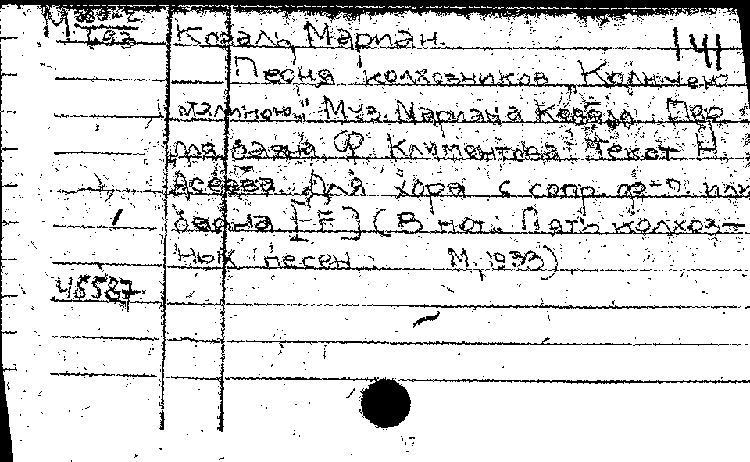 М 332-2
Коваль, Мариан. 141
Песня колхозников „Колючею
малиною". Муз. Мариана Коваля. Пер
для баяна Ф. Климентова. Текст Н.
Асеева. Для хора с сопр. ф-п. или
баяна [F] (В нот.: Пять колхоз-
ных песен. М., 1933)
48587